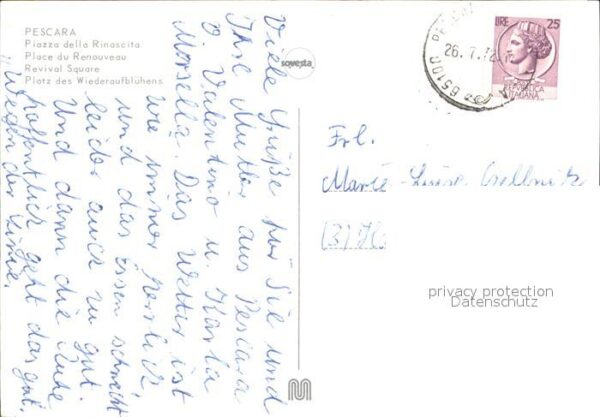 PESCARA
Piazza della Rinascita
Place du Renouveau
Revival Square
Platz des Wiederaufblühens
sovesta
LIRE 25
REPUBBLICA
ITALIANA
26.7.72
65100
Viele Grüße für Sie und
Ihre Mutter aus Pescara
O. Valentino u. Karla
Morsella. Das Wetter ist
wie immer herrlich
und das Essen schmeckt
leider auch zu gut.
Und dann die Ruhe
hoffentlich geht das gut
"Wegen der Linie.
Frl.
Marie-Luise
privacy protection
Datenschutz